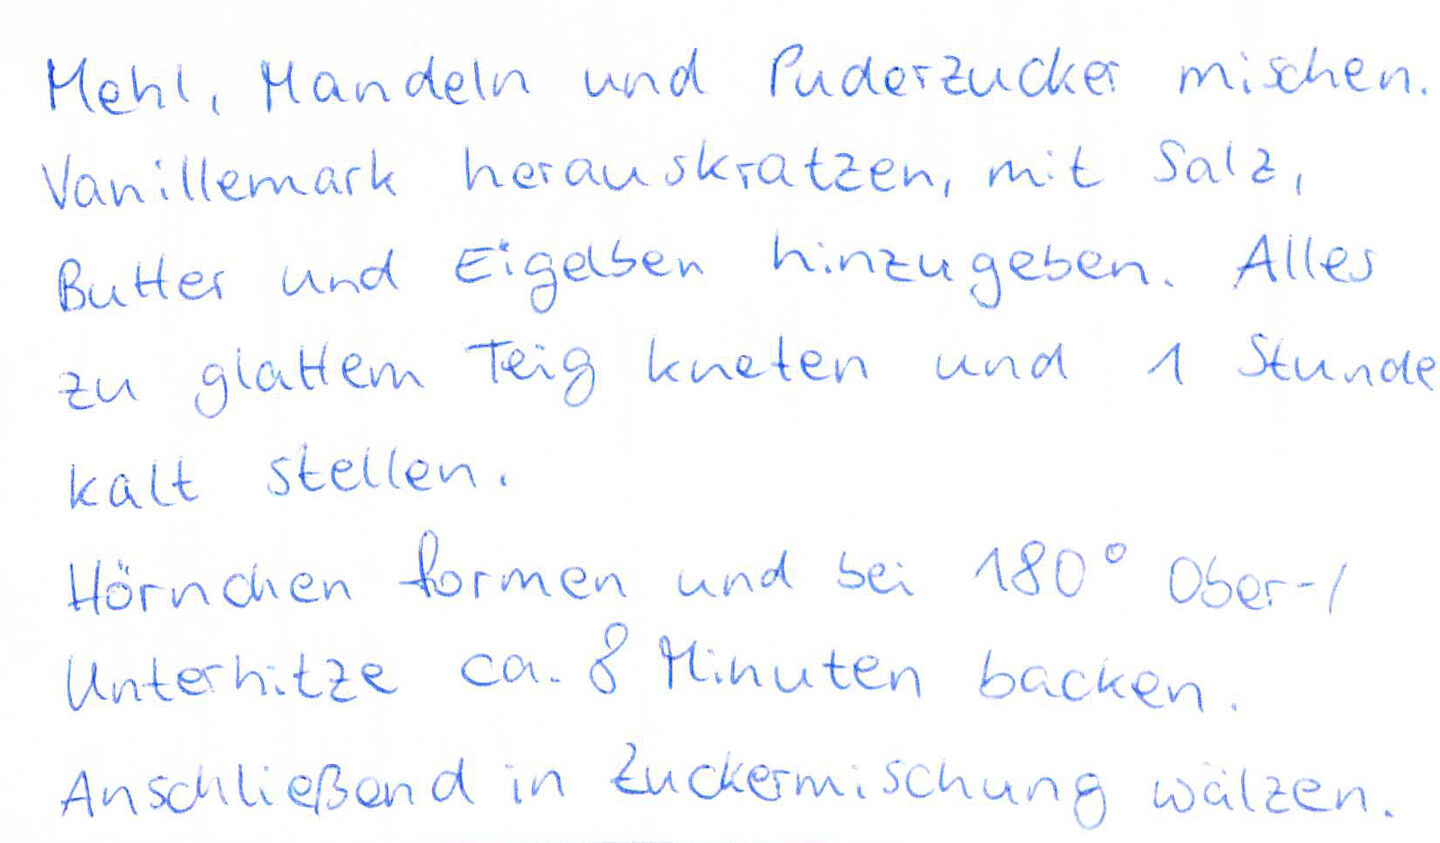 Mehl, Mandeln und Puderzucker mischen.
Vanillemark herauskratzen, mit Salz,
Butter und Eigelben hinzugeben. Alles
zu glattem Teig kneten und 1 Stunde
kalt stellen.
Hörnchen formen und bei 180° Ober-/
Unterhitze ca. 8 Minuten backen.
Anschließend in Zuckermischung wälzen.